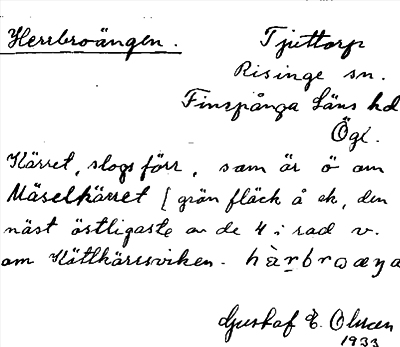 Herrbroängen.
Tjuttorp
Risinge sn.
Finspånga Läns hd
Ögl.
Kärret, slogs förr, som är ö om
Mäselkärret ( grön fläck å ek, den
näst östligaste av de 4 i rad v.
om Kättkärrsviken. hàrbroæŋa
Gustaf E. Olsson
1933